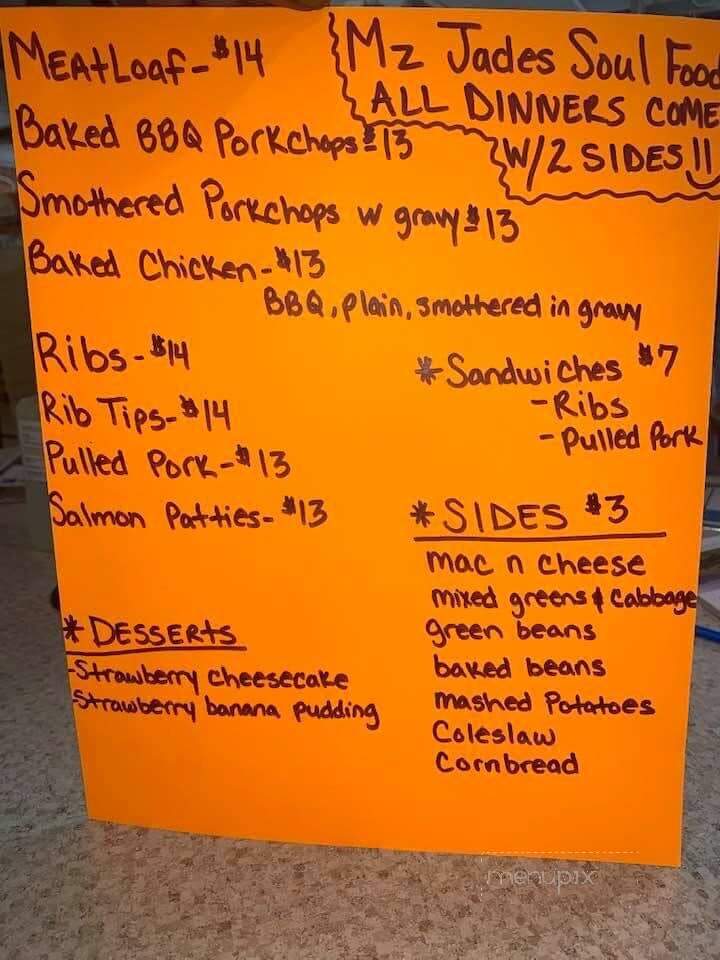 Mz Jades Soul Food
ALL DINNERS COME
W/2 SIDES!!
MEAtLoaf-$14
Baked BBQ Porkchops $13
Smothered Porkchops w gravy $13
Baked Chicken-$13
BBQ, plain, smothered in gravy
Ribs-$14
Rib Tips-$14
Pulled Pork-$13
Salmon Patties-$13
*Sandwiches $7
-Ribs
-Pulled Pork
*SIDES $3
mac n cheese
mixed greens & Cabbage
green beans
baked beans
mashed Potatoes
Coleslaw
Cornbread
*DESSERTS
-Strawberry cheesecake
-Strawberry banana pudding
menupix